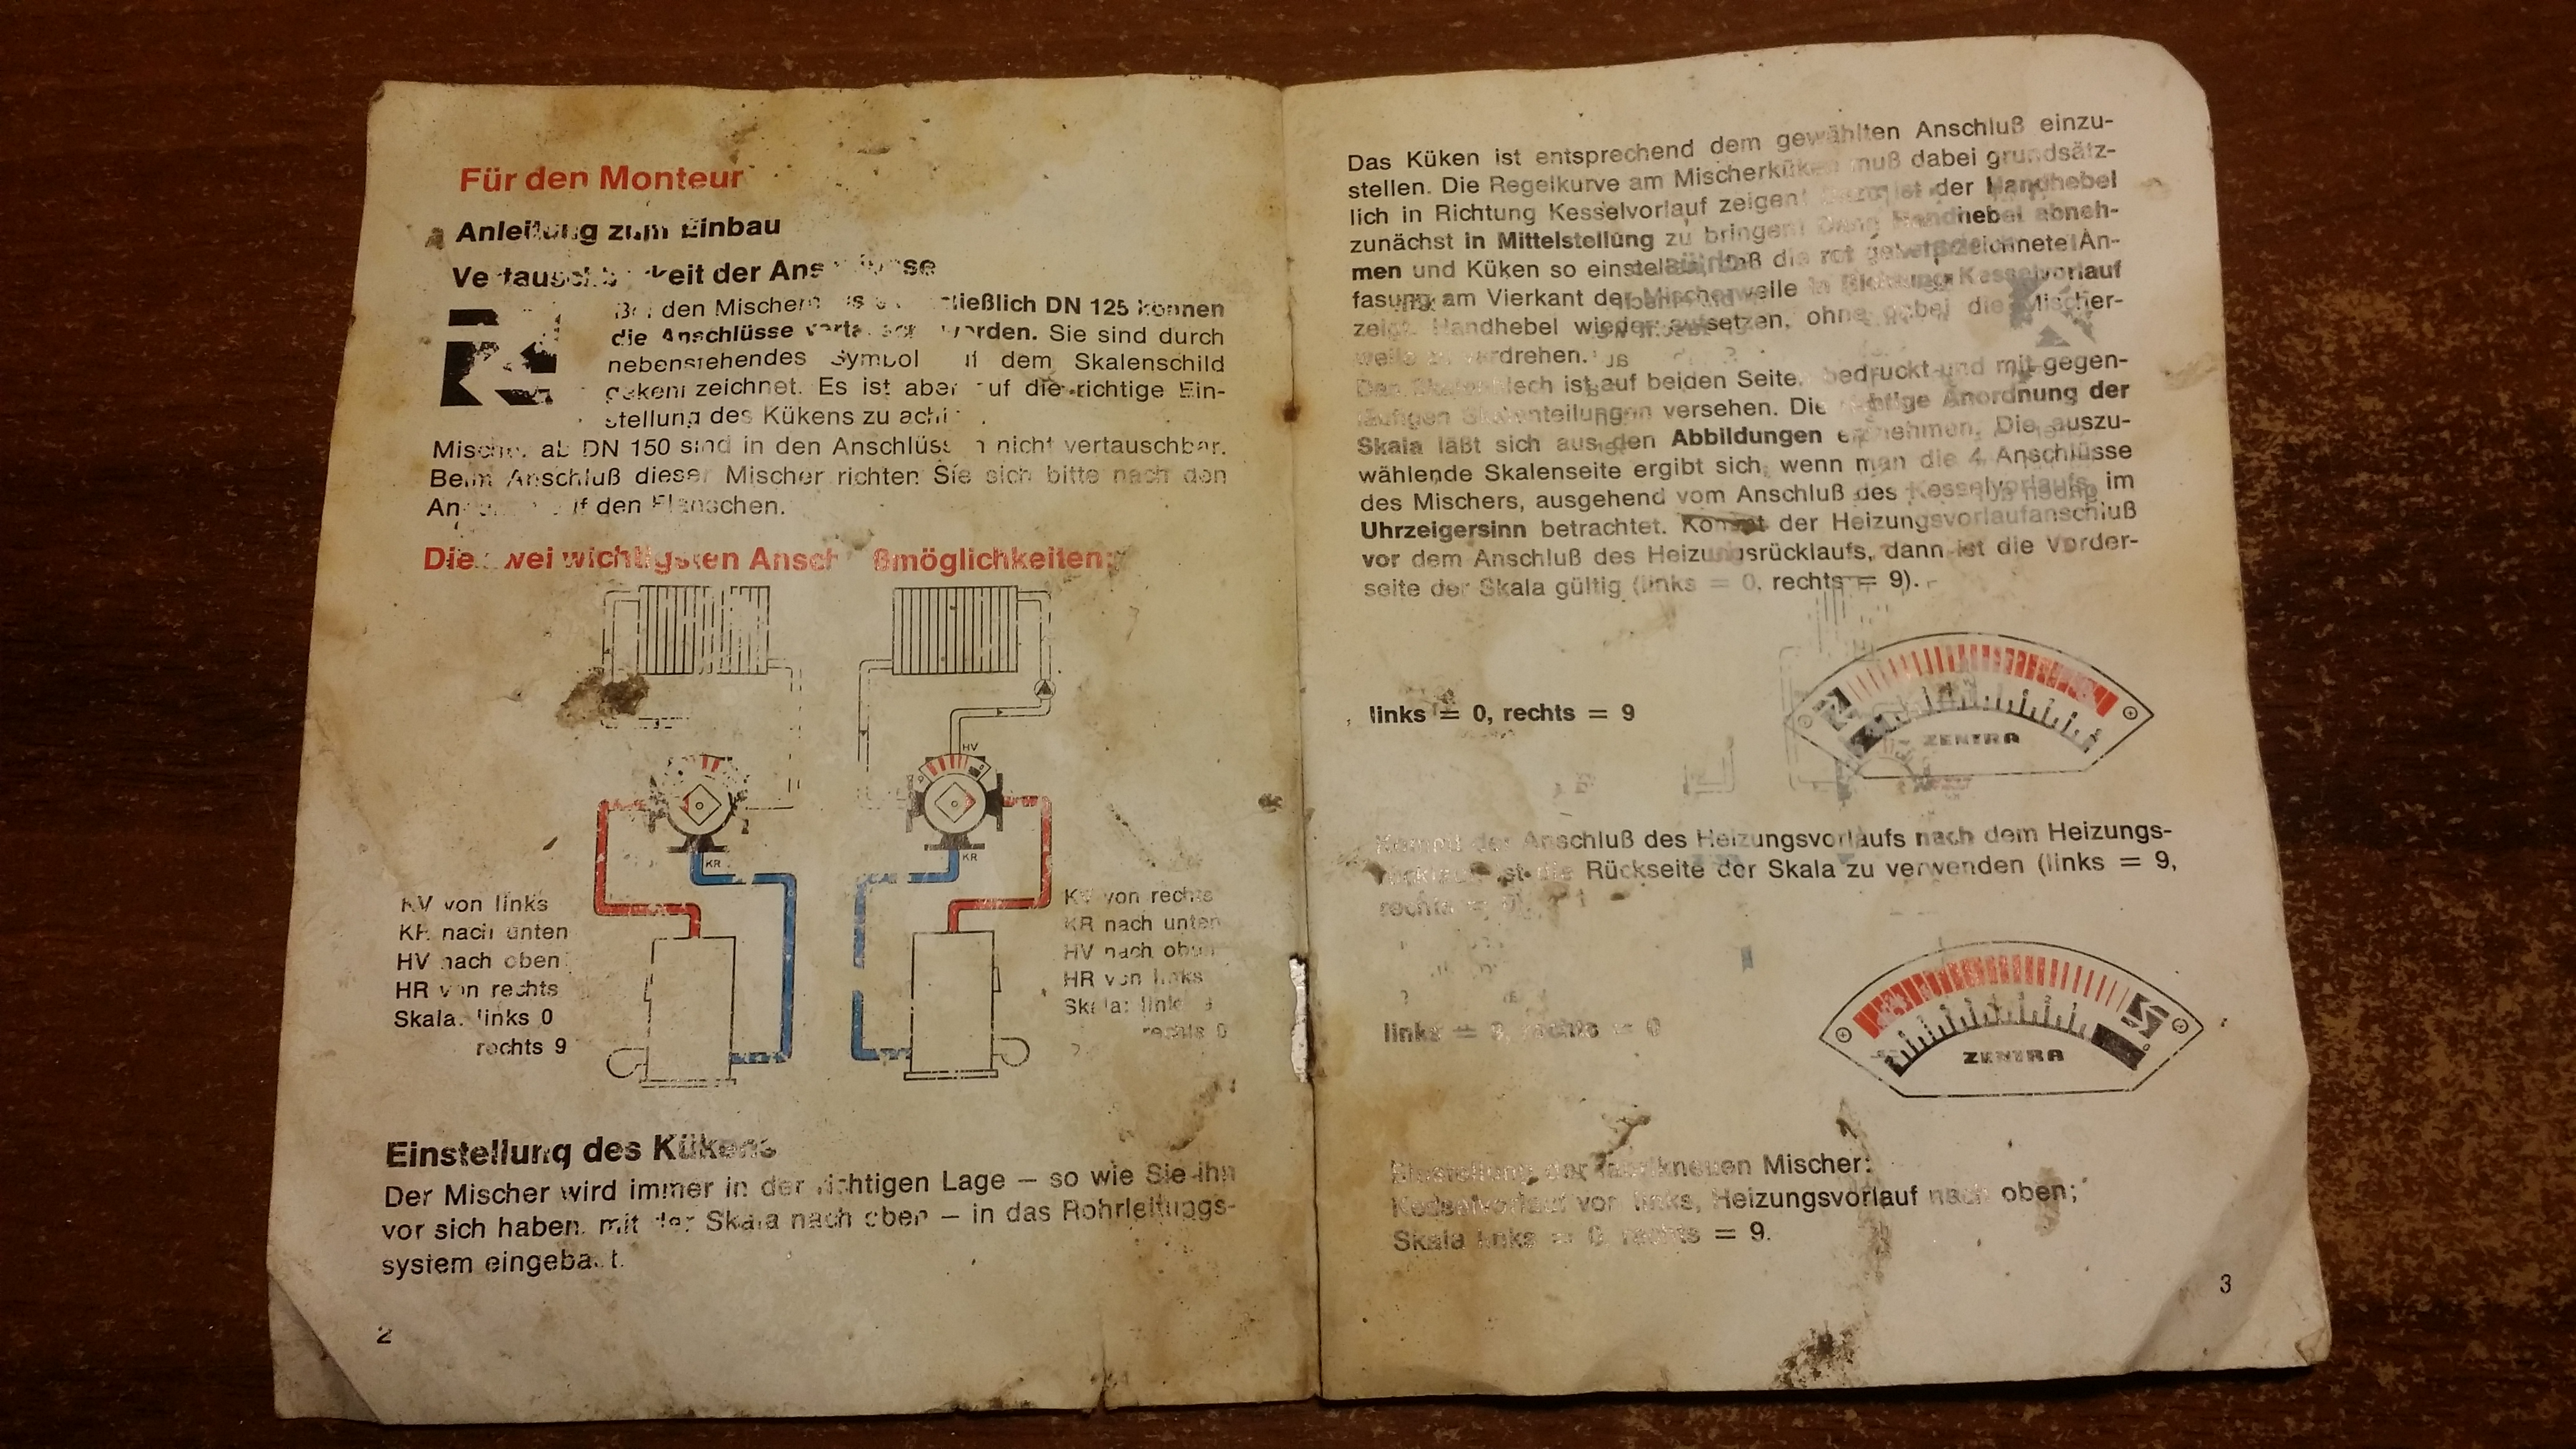 Für den Monteur
Anleitung zum Einbau
der
den Mischern DN 125 können
die Anschlüsse werden. Sie sind durch
nebenstehendes Symbol dem Skalenschild
zeichnet. Es ist aber die richtige Ein-
stellung des Kükens zu
ab DN 150 sind in den nicht vertauschbar.
Beim Anschluß dieser Mischer richten Sie sich bitte nach den
den Flanschen.
Die wichtigsten
HV
KR
KR
KV von links
KR nach unten
HV nach oben
HR von rechts
Skala: links 0
rechts 9
KV von rechts
KR nach unten
HV nach oben
HR von links
Skala: links
rechts 0
Einstellung des Kükens
Der Mischer wird immer in der richtigen Lage – so wie Sie ihn
vor sich haben, mit der Skala nach oben – in das Rohrleitungs-
system eingebaut.
2
Das Küken ist entsprechend dem gewählten Anschluß einzu-
stellen. Die Regelkurve am Mischerküken muß dabei grundsätz-
lich in Richtung Kesselvorlauf zeigen! ist der Handhebel
zunächst in Mittelstellung zu bringen! Handhebel abneh-
men und Küken so einstellen, daß die rot An-
fasung am Vierkant der Mischerwelle in Richtung Kesselvorlauf
zeigt. Handhebel wieder aufsetzen, ohne dabei die Mischer-
welle zu verdrehen.
Das Skalenblech ist auf beiden Seiten bedruckt und mit gegen-
läufigen Skalenteilungen versehen. Die richtige Anordnung der
Skala läßt sich aus den Abbildungen entnehmen. Die auszu-
wählende Skalenseite ergibt sich, wenn man die 4 Anschlüsse
des Mischers, ausgehend vom Anschluß des Kesselvorlaufs, im
Uhrzeigersinn betrachtet. Kommt der Heizungsvorlaufanschluß
vor dem Anschluß des Heizungsrücklaufs, dann ist die Vorder-
seite der Skala gültig (links = 0, rechts = 9).
links = 0, rechts = 9
ZENTRA
Kommt der Anschluß des Heizungsvorlaufs nach dem Heizungs-
rücklauf, ist die Rückseite der Skala zu verwenden (links = 9,
rechts = 0).
links = 9, rechts = 0
ZENTRA
Einstellung der fabrikneuen Mischer:
Kesselvorlauf von links, Heizungsvorlauf nach oben;
Skala links = 0, rechts = 9.
3